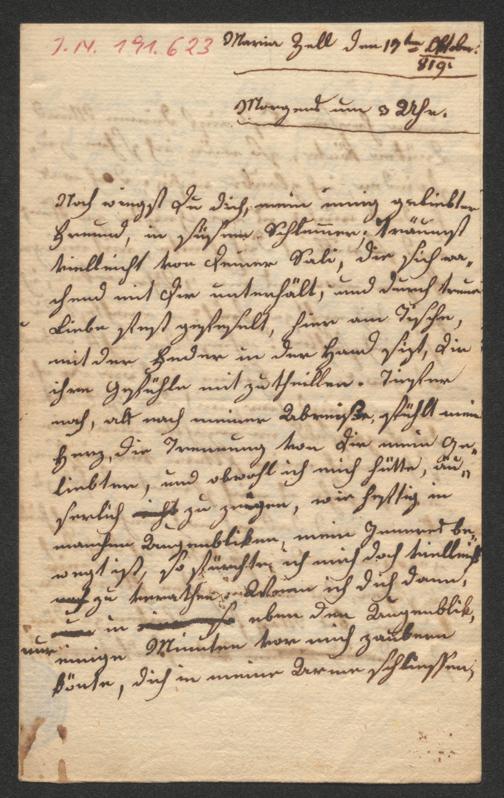 J. N. 191.623
Maria Zell den 19ten Oktober.
819.
Morgens um 3 Uhr.
Noch wiegst du dich, mein innig geliebter
Freund, in süssem Schlummer, träumst
vielleicht von deiner Sali, die sich wa-
chend mit dir unterhält, und durch treue
Liebe stest gefesselt, hier am Tische,
mit der Feder in der Hand sizt, dir
ihre Gefühle mit zu theillen. Tiefer
noch, als nach meiner Abreise, fühlt mein
Herz, die Trennung von dir mein Ge-
liebter, und obwohl ich mich hütte, äu-
serlich nicht zu zeigen, wie heftig in
manchen Augenbliken, mein Inneres be-
wegt ist, so fürchte ich mich doch vielleicht
zu verrathen. Wenn ich dich dann,
in eben den Augenblik,
nur einige Minuten vor mich zaubern
könte, dich in meine Arme schliessen,